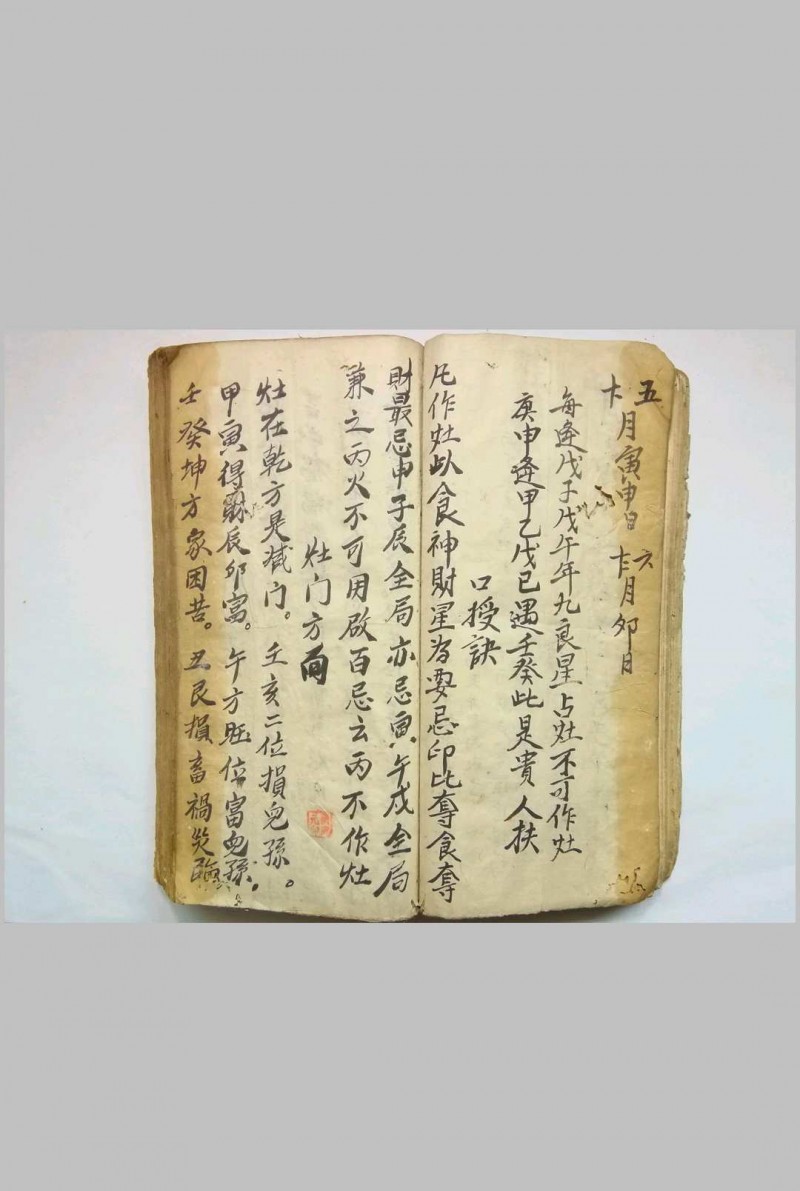 五十月寅申日 六十月夘日
每逢戊子戊午年九良星占灶不可作灶
庚申逢甲乙戊已遇壬癸此是貴人扶
口授訣
凡作灶以食神財星为要忌印比奪食奪
財最忌申子辰全局亦忌寅午戌全局
兼之丙火不可用啟百忌云丙不作灶
灶门方向
灶在乾方是滅门。壬亥二位損兒孫。
甲寅得財辰卯富。午方旺位富兒孫。
壬癸坤方家困苦。丑艮損畜禍災臨